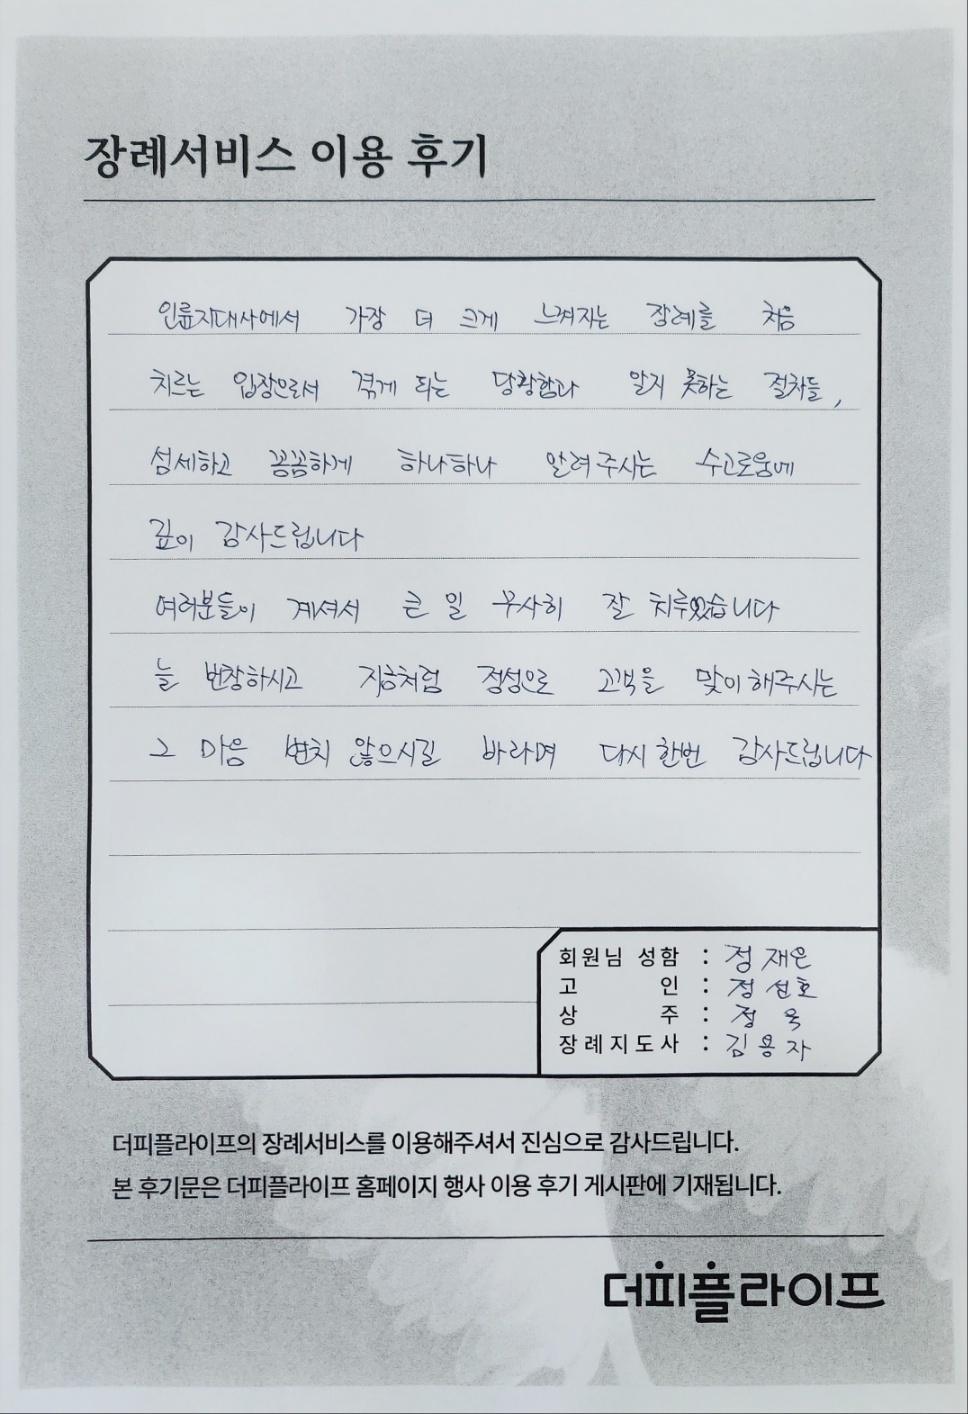 장례서비스 이용 후기
인륜지대사에서 가장 더 크게 느껴지는 장례를 처음
치르는 입장으로서 겪게 되는 당황함과 알지 못하는 절차들,
섬세하고 꼼꼼하게 하나하나 알려주시는 수고로움에
깊이 감사드립니다
여러분들이 계셔서 큰 일 무사히 잘 치루었습니다
늘 번창하시고 지금처럼 정성으로 고객을 맞이해주시는
그 마음 변치 않으시길 바라며 다시한번 감사드립니다
회원님 성함 : 정재은
고 인 : 정선호
상 주 : 정 욱
장례지도사 : 김용자
더피플라이프의 장례서비스를 이용해주셔서 진심으로 감사드립니다.
본 후기문은 더피플라이프 홈페이지 행사 이용 후기 게시판에 기재됩니다.
더피플라이프